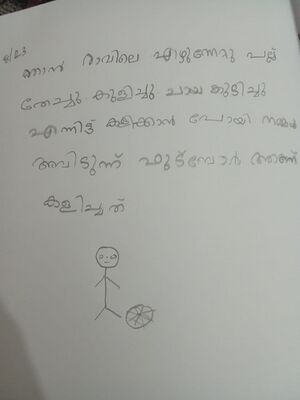 ഞാൻ രാവിലെ എഴുന്നേറ്റു പല്ല്
തേച്ചു കുളിച്ചു ചായ കുടിച്ചു
എന്നിട്ട് കളിക്കാൻ പോയി
അവിടുന്ന് ഫുട്ബോൾ ആണ്
കളിച്ചത്